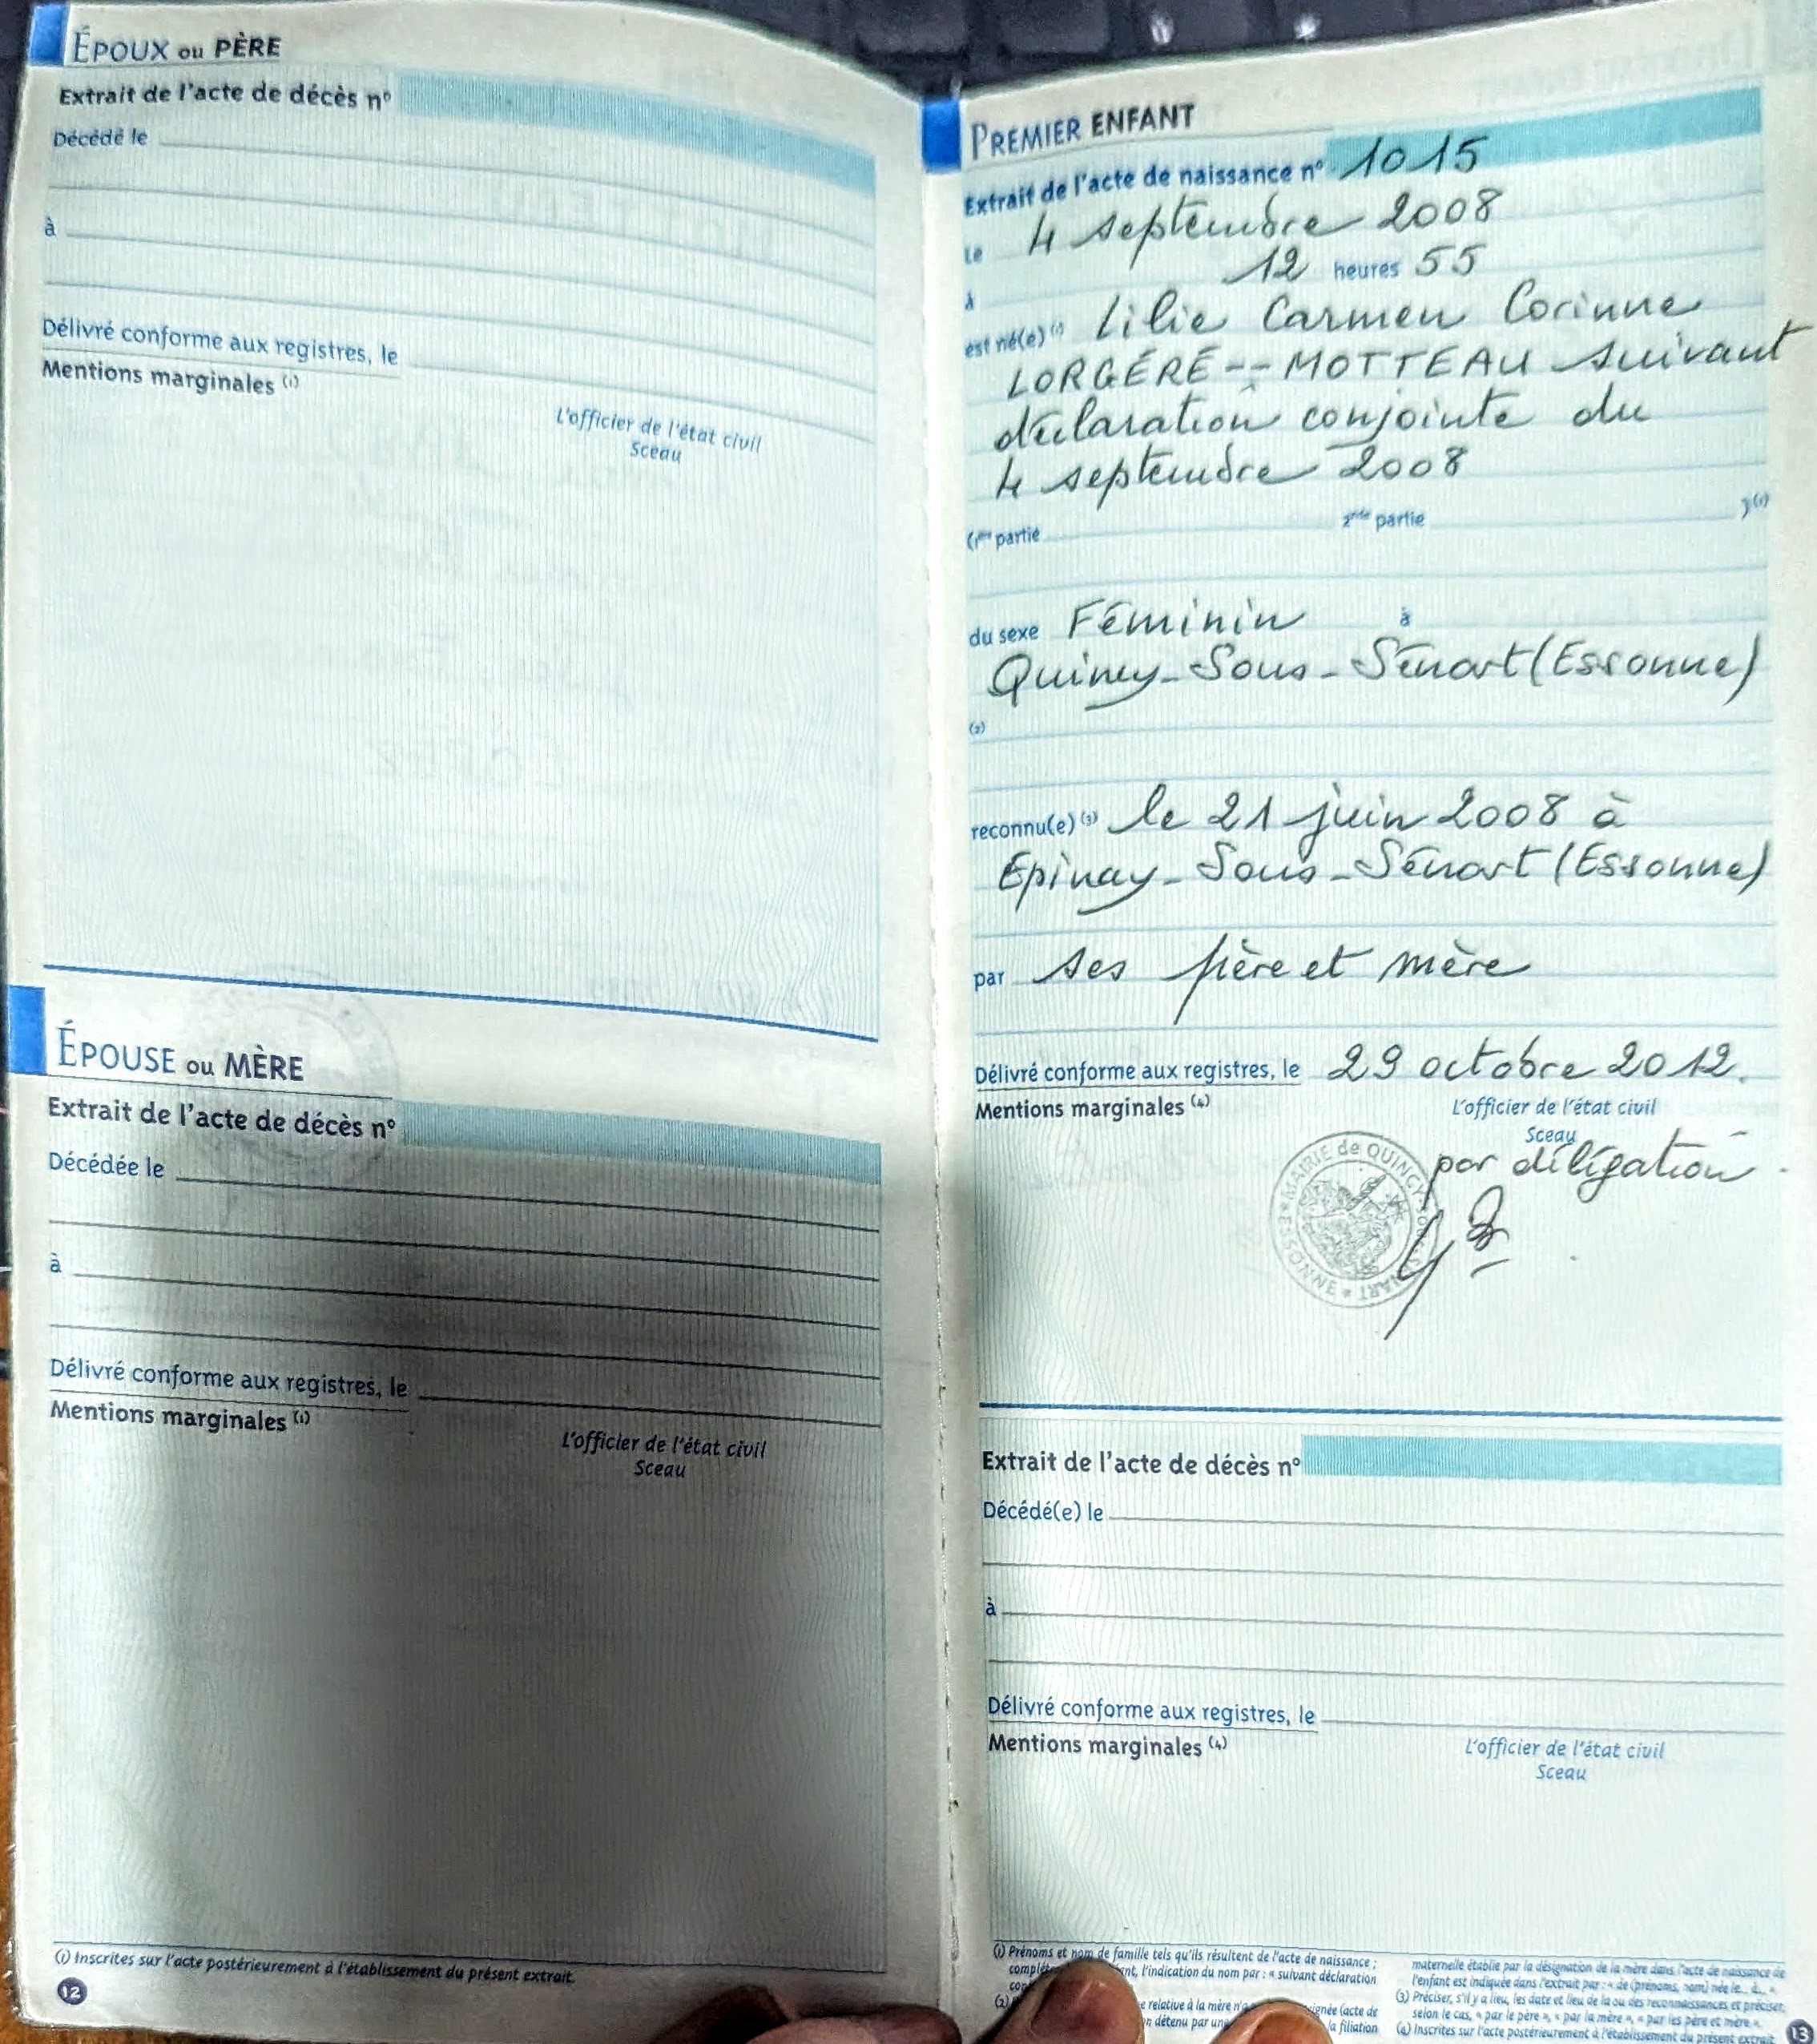 ÉPOUX ou PÈRE
Extrait de l'acte de décès n°
Décédé le
à
Délivré conforme aux registres, le
Mentions marginales (1)
L'officier de l'état civil
Sceau
ÉPOUSE ou MÈRE
Extrait de l'acte de décès n°
Décédée le
à
Délivré conforme aux registres, le
Mentions marginales (1)
L'officier de l'état civil
Sceau
(1) Inscrites sur l'acte postérieurement à l'établissement du présent extrait.
12
PREMIER ENFANT
Extrait de l'acte de naissance n° 1015
Le 4 septembre 2008
à 12 heures 55
est né(e) (1) Lilie Carmen Corinne
LORGÉRÉ--MOTTEAU suivant
déclaration conjointe du
4 septembre 2008
(1ère partie 2nde partie )(1)
du sexe Féminin à
Quincy-Sous-Sénart (Essonne)
(2)
reconnu(e) (3) le 21 juin 2008 à
Epinay-Sous-Sénart (Essonne)
par ses père et mère
Délivré conforme aux registres, le 29 octobre 2012.
Mentions marginales (4)
L'officier de l'état civil
Sceau
par délégation
MAIRIE de QUINCY SOUS SÉNART * ESSONNE *
Extrait de l'acte de décès n°
Décédé(e) le
à
Délivré conforme aux registres, le
Mentions marginales (4)
L'officier de l'état civil
Sceau
(1) Prénoms et nom de famille tels qu'ils résultent de l'acte de naissance ;
l'indication du nom par : « suivant déclaration
(2)
relative à la mère
(acte de
détenu par
la filiation
maternelle établie par la désignation de la mère dans l'acte de naissance de
l'enfant est indiquée dans l'extrait par : « de (prénoms, nom) née le... à... ».
(3) Préciser, s'il y a lieu, les date et lieu de la ou des reconnaissances et préciser,
selon le cas, « par le père », « par la mère », « par les père et mère ».
(4) Inscrites sur l'acte postérieurement à l'établissement du présent extrait.
13